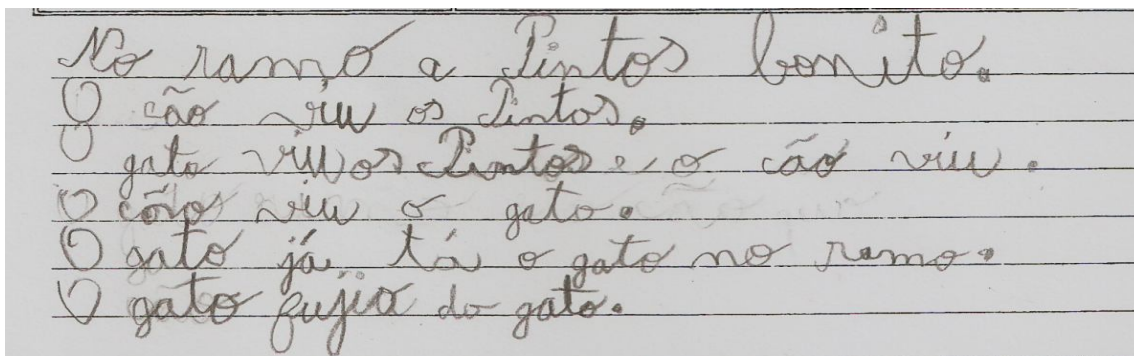 No ramo a Pintos bonito.
O cão viu os Pintos.
O gato viu os Pintos e o cão viu.
O cão viu o gato.
O gato já tá o gato no ramo.
O gato fujio do gato.